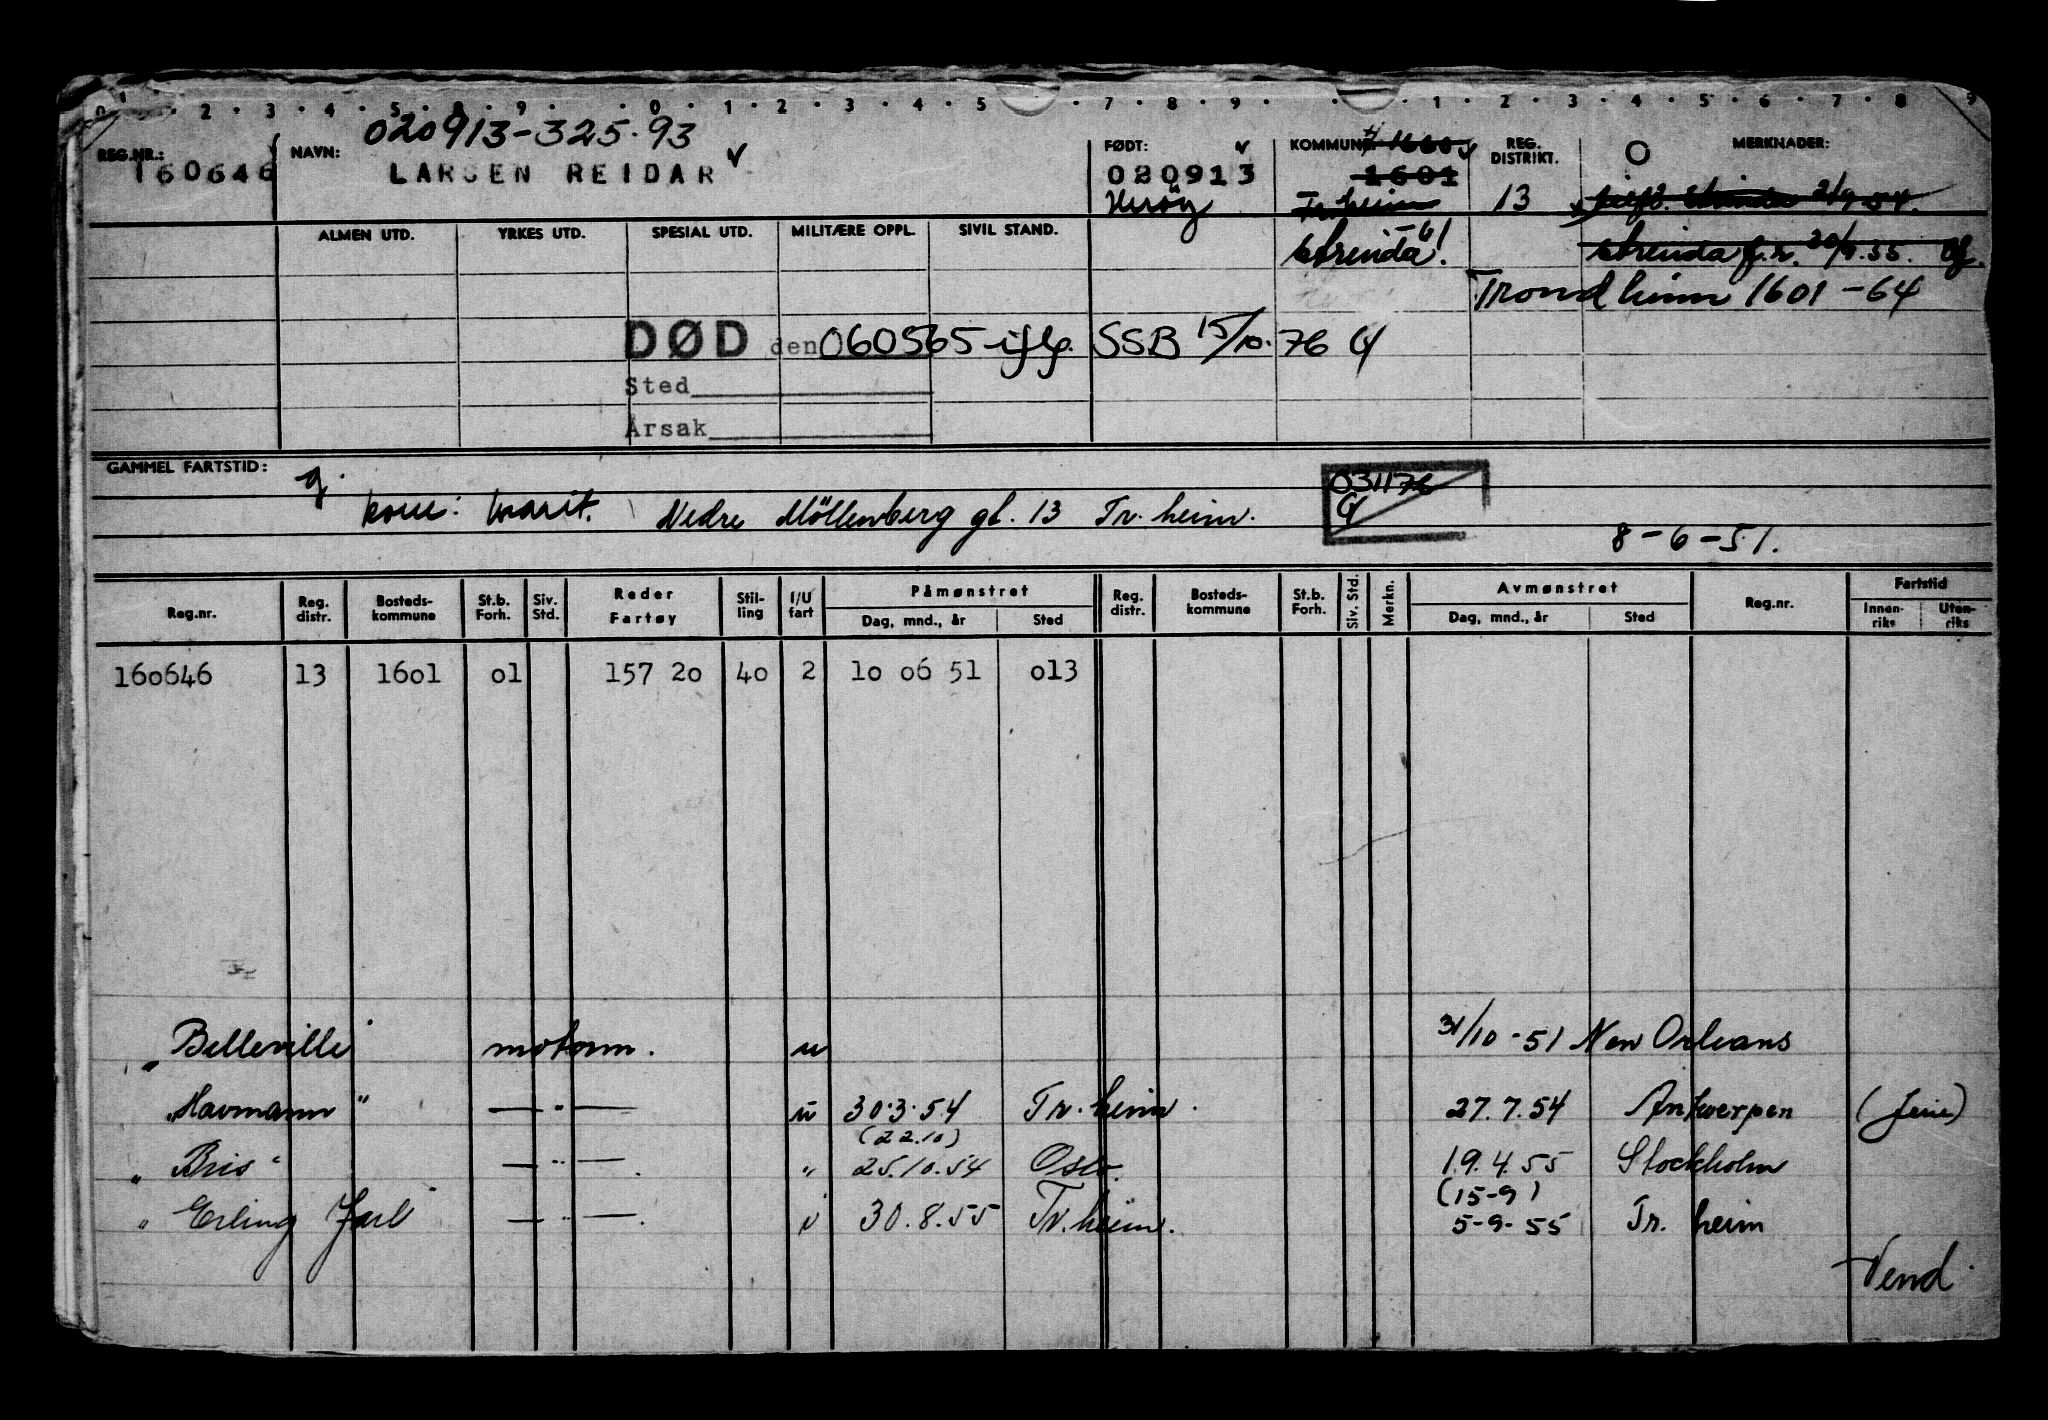 0 1 2 3 4 5 8 9 0 1 2 3 4 5 7 8 9 1 2 3 4 5 6 7 8 9
020913-325.93
REG.NR.: 160646 NAVN: LARSEN REIDAR FØDT: 020913 Herøy KOMMUNE 1660 REG. DISTRIKT. 13 MERKNADER:
1601
Tr.heim
Strinda 2/9 54.
ALMEN UTD. YRKES UTD. SPESIAL UTD. MILITÆRE OPPL. SIVIL STAND.
Strinda -61. Strinda f.r. 20/9.55.
Trondheim 1601-64
DØD den 060565 iflg. SSB 15/10.76
Sted
Årsak
GAMMEL FARTSTID: g.
031176
Nedre Möllenberg gt. 13 Tr.heim.
8-6-51.
Reg.nr. Reg. distr. Bosteds-kommune St.b. Forh. Siv. Std. Reder Fartøy Stil-ling I/U fart Påmønstret Dag, mnd., år Sted Reg. distr. Bosteds-kommune St.b. Forh. Siv. Std. Merkn. Avmønstret Dag, mnd., år Sted Reg.nr. Fartstid Innen-riks Uten-riks
160646 13 1601 01 157 20 40 2 10 06 51 013
"Belleville" motorm. u 31/10-51 New Orleans
"Havmann" —"— u 30.3.54 Tr.heim. 27.7.54 Antwerpen (ferie)
(22.10)
"Bris" —"— " 25.10.54 Oslo. 19.4.55 Stockholm
(15-9)
"Erling Jarl" —"— i 30.8.55 Tr.heim. 5-9-55 Tr.heim
Vend